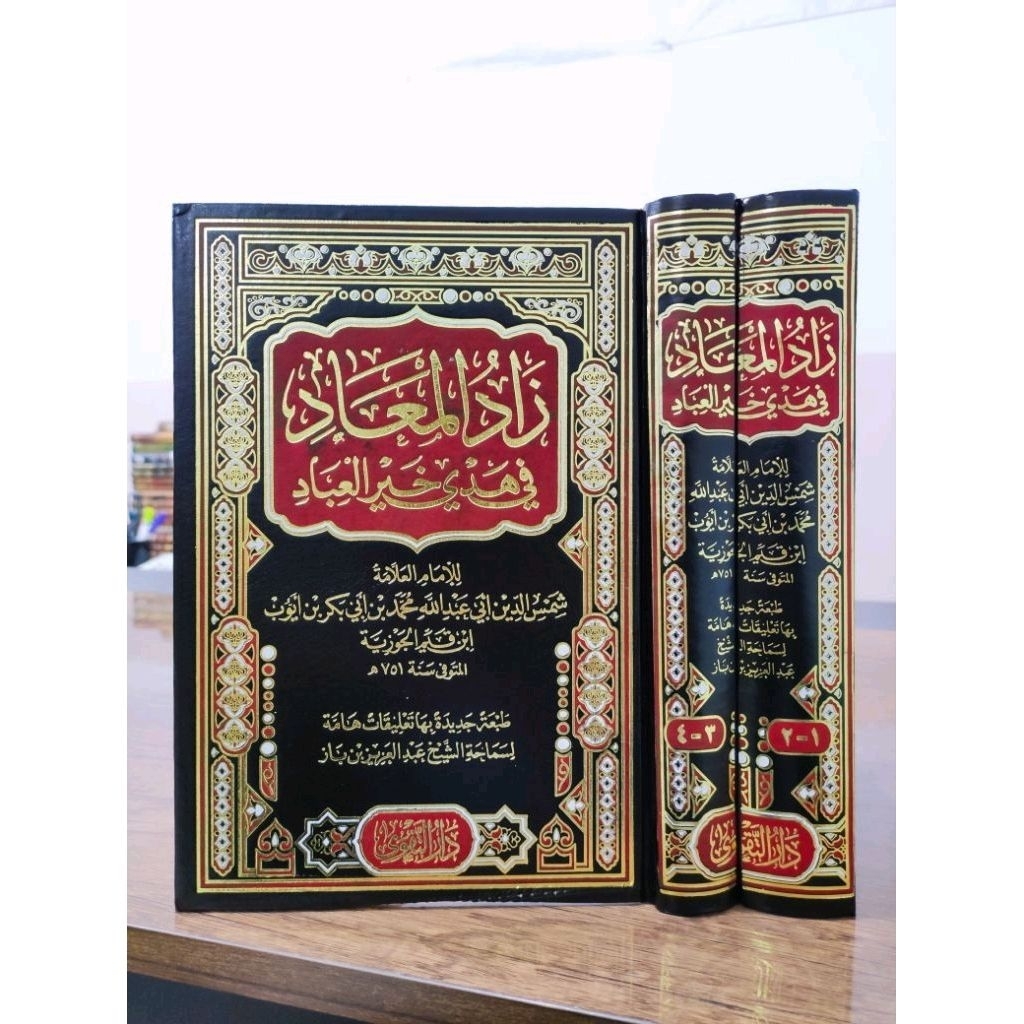 زَادُ المَعَادِ
فِي هَدْيِ خَيْرِ العِبَادِ
لِلإِمَامِ العَلَّامَةِ
شَمْسِ الدِّينِ أَبِي عَبْدِ اللَّهِ مُحَمَّدِ بْنِ أَبِي بَكْرِ بْنِ أَيُّوبَ
ابْنِ قَيِّمِ الجَوْزِيَّةِ
المتوفى سَنَة ٧٥١ هـ
طَبْعَةٌ جَدِيدَةٌ بِهَا تَعْلِيقَاتٌ هَامَّةٌ
لِسَمَاحَةِ الشَّيْخِ عَبْدِ العَزِيزِ بْنِ بَاز
دَارُ التَّقْوَى
زَادُ المَعَادِ
فِي هَدْيِ خَيْرِ العِبَادِ
لِلإِمَامِ العَلَّامَةِ
شَمْسِ الدِّينِ أَبِي عَبْدِ اللَّهِ
مُحَمَّدِ بْنِ أَبِي بَكْرِ بْنِ أَيُّوبَ
ابْنِ قَيِّمِ الجَوْزِيَّةِ
المتوفى سَنَة ٧٥١ هـ
طَبْعَةٌ جَدِيدَةٌ
بِهَا تَعْلِيقَاتٌ هَامَّةٌ
لِسَمَاحَةِ الشَّيْخِ
عَبْدِ العَزِيزِ بْنِ بَاز
١-٢
٣-٤
دَارُ التَّقْوَى